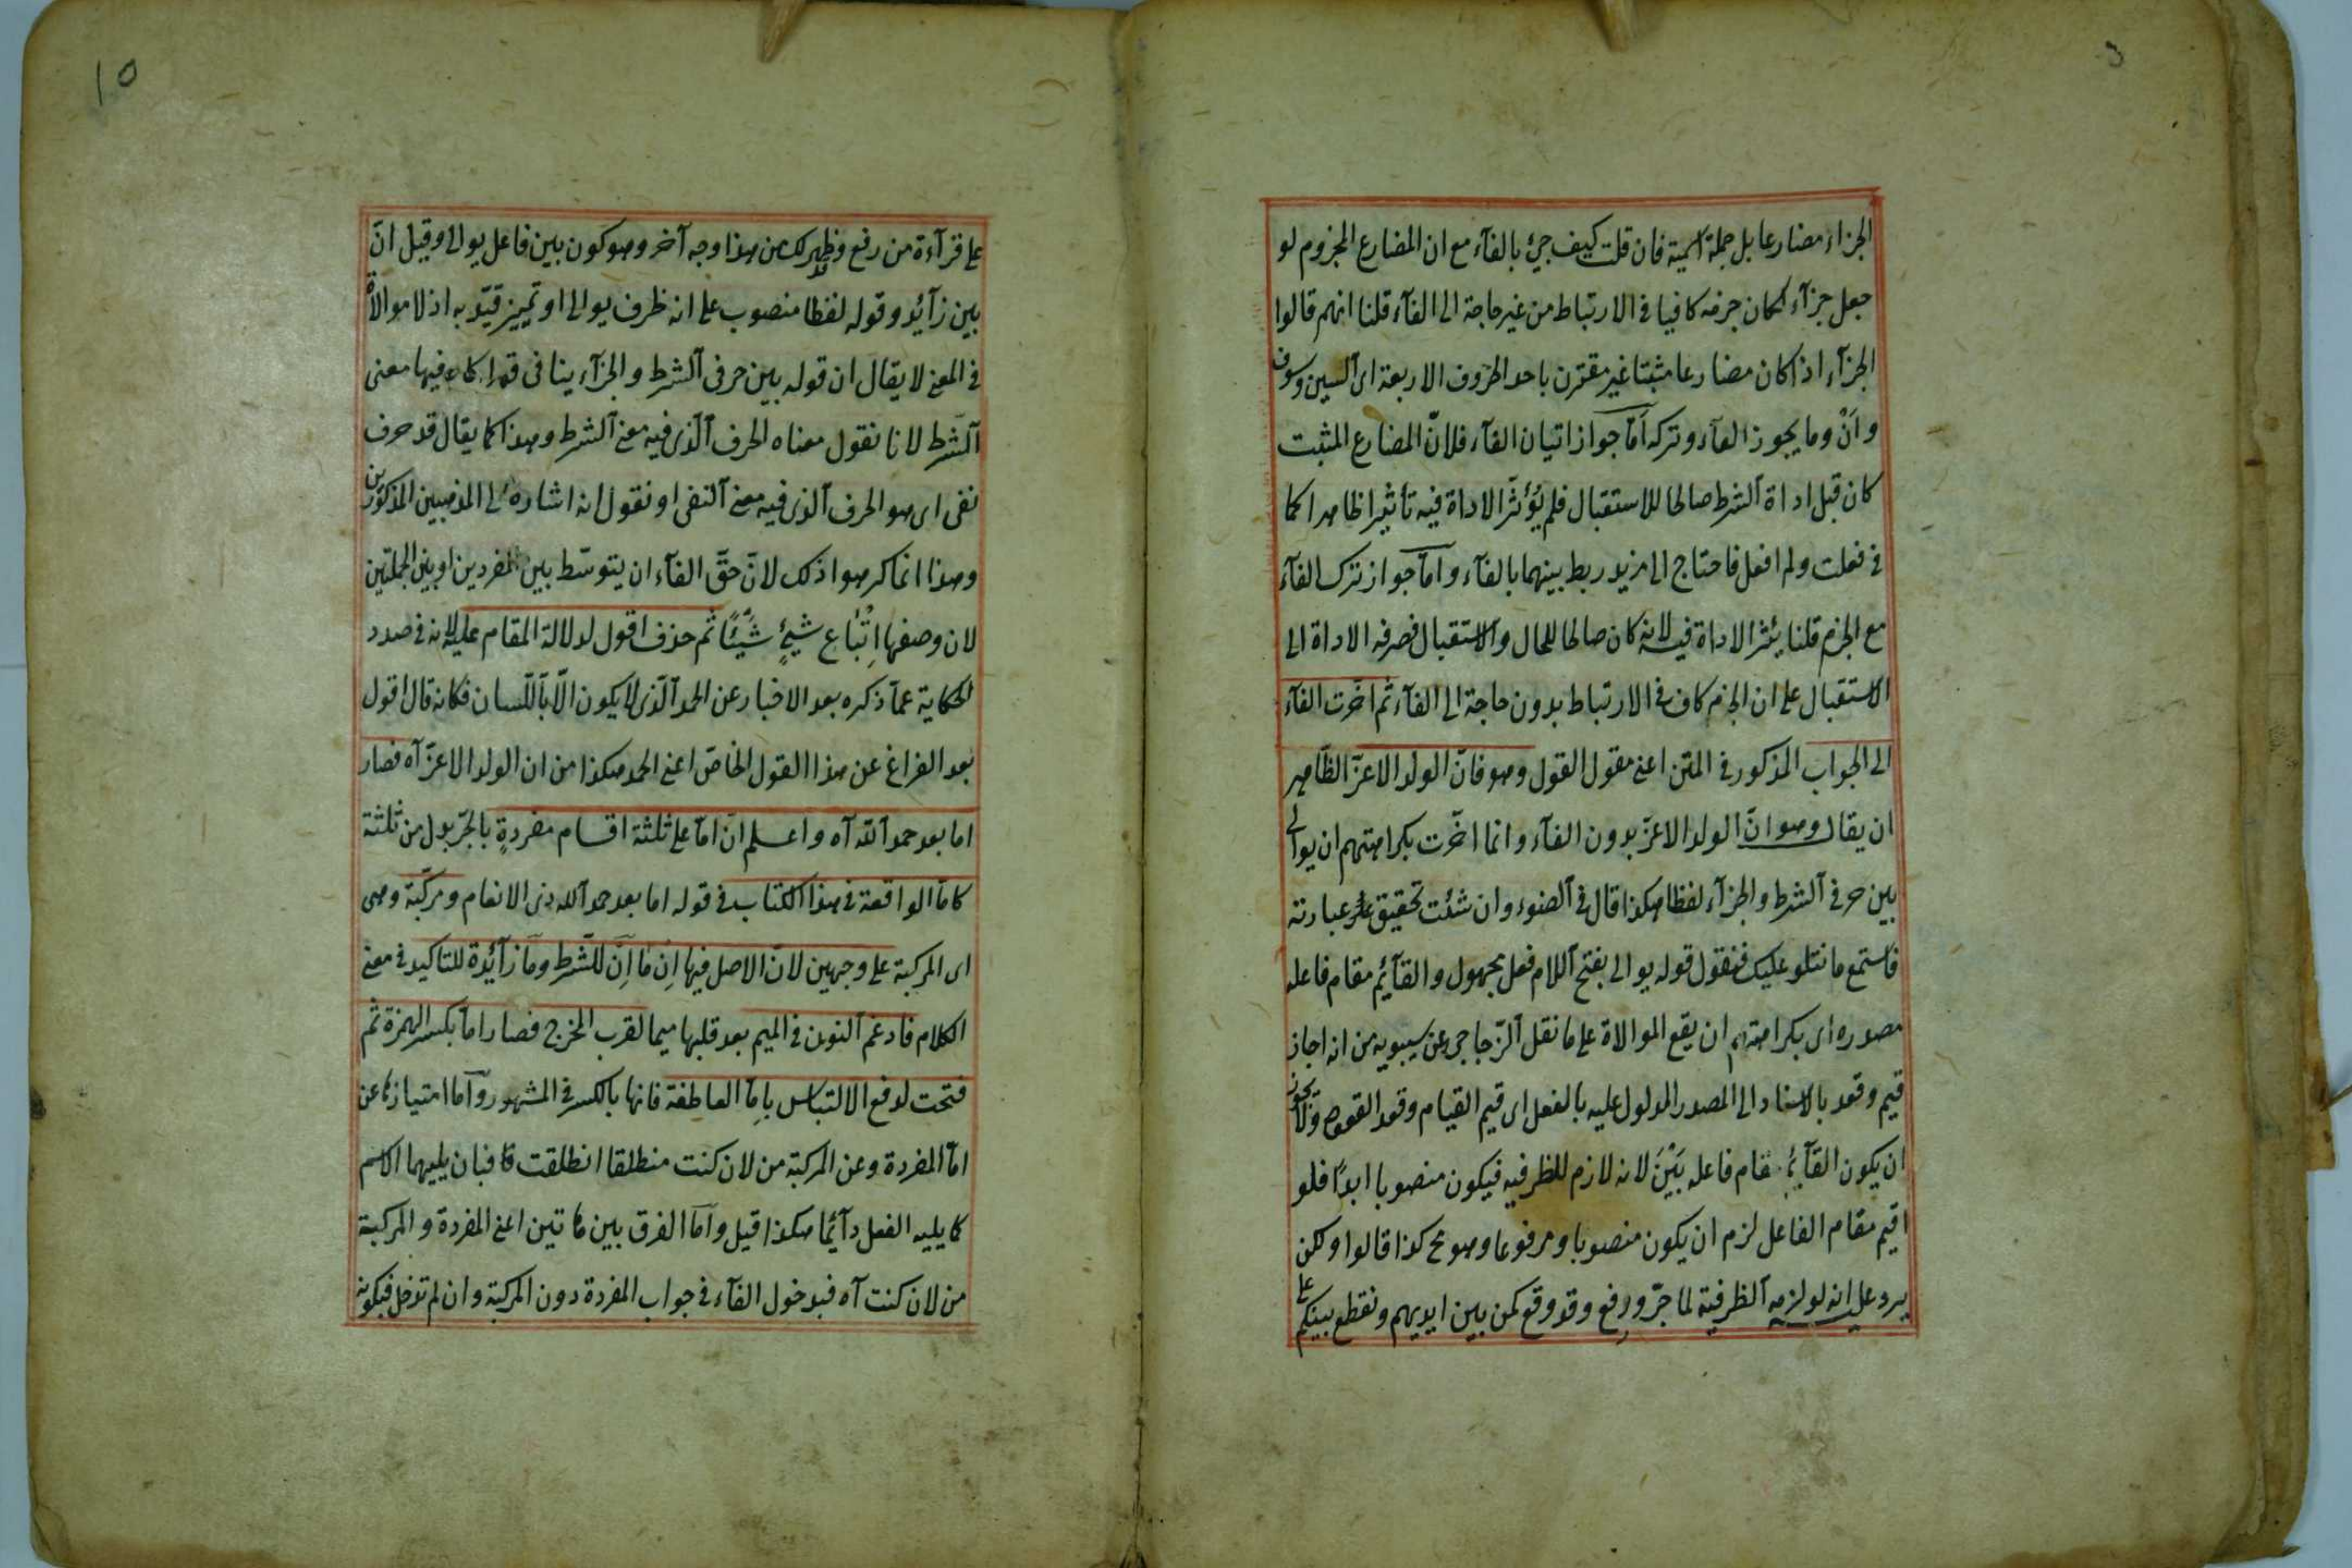 الجزاء مضارعا بل جملة اسمية فان قلت كيف جيئ بالفآء مع ان المضارع المجزوم لو
جعل جزآء لكان جزمه كافيا فى الارتباط من غير حاجة الى الفآء قلنا انهم قالوا
الجزآء اذا كان مضارعا مثبتا غير مقترن باحد الحروف الاربعة اى السين وسوف
وان وما يجوز الفآء وتركه امّا جواز اتيان الفآء فلانّ المضارع المثبت
كان قبل اداة الشرط صالحا للاستقبال فلم يُؤثّر الاداة فيه تأثيرا ظاهرا كما
فى فعلت ولم افعل فاحتاج الى مزيد ربط بينهما بالفآء وامّا جواز ترك الفآء
مع الجزم قلنا يئثر الاداة فيه لانه كان صالحا للحال والاستقبال فصرفه الاداة الى
الاستقبال على ان الجزم كاف فى الارتباط بدون حاجة الى الفآء ثم اخّرت الفآء
الى الجواب المذكور فى المتن اعنى مقول القول وهو فانّ الولد الاعزّ الظّاهر
ان يقال وهو انّ الولد الاعزّ بدون الفآء وانما اخّرت بكراهتهم ان يوالى
بين حرفى الشرط والجزآء لفظا هكذا قال فى الضوء وان شئت تحقيق عبارته
فاستمع ما نتلو عليك فنقول قوله يوالى بفتح اللام فعل مجهول والقآئم مقام فاعله
مصدره اى بكراهتهم ان يقع الموالاة على ما نقل الزّجاجى عن سيبويه من انه اجاز
قيم وقعد بالاسناد الى المصدر المدلول عليه بالفعل اى قيم القيام وقعد القعود ولا يجوز
ان يكون القآئم مقام فاعله بَيْنَ لانه لازم للظرفيه فيكون منصوبا ابدًا فلو
اقيم مقام الفاعل لزم ان يكون منصوبا ومرفوعا وهو مح كذا قالوا ولكن
يرد عليه انه لو لزمه الظرفية لما جرّ ورفع وقد وقع كمن بين ايديهم ونقطع بينكم على
على قرآءة من رفع وقد ظهر لك من هذا وجه آخر وهو كون بين فاعل يوالى وقيل انّ
بين زآئد وقوله لفظا منصوب على انه ظرف يوالى او تمييز قيّد به اذ لا موالاة
فى المعنى لا يقال ان قوله بين حرفى الشرط والجزآء ينافى قوله كلمة فيها معنى
الشرط لانا نقول معناه الحرف الّذى فيه معنى الشرط وهذا كما يقال قد حرف
نفى اى هو الحرف الذى فيه معنى النفى او نقول انه اشارة الى المذهبين المذكورين
وهذا انما كرهوا ذلك لانّ حقّ الفآء ان يتوسّط بين المفردين او بين الجملتين
لان وصفها اِتْبَاع شيئٍ شيئًا ثم حذف اقول لدلالة المقام عليه لانه فى صدد
الحكاية عمّا ذكره بعد الاخبار عن الحمد الّذى لا يكون الّا باللّسان فكانه قال اقول
بعد الفراغ عن هذا القول الخاصّ اعنى الحمد هكذا من ان الولد الاعزّ آه فصار
اما بعد حمد الله آه واعلم انّ امّا على ثلثة اقسام مفردةٍ بالجرّ بدل من ثلثة
كامّا الواقعة فى هذا الكتاب فى قوله اما بعد حمد الله ذى الانعام ومركّبة وهى
اى المركبة على وجهين لانّ الاصل فيها اِن مَا اِنْ للشّرط ومَا زآئدة للتاكيد فى معنى
الكلام فادغم النون فى الميم بعد قلبها ميما لقرب المخرج فصار امّا بكسر الهمزة ثم
فتحت لدفع الالتباس بامّا العاطفة فانها بالكسر فى المشهور وامّا امتيازها عن
امّا المفردة وعن المركبة من لان كنت منطلقا انطلقت فبان يليهما الاسم
كما يليه الفعل دآئما هكذا قيل وامّا الفرق بين هاتين اعنى المفردة والمركبة
من لان كنت آه فبدخول الفآء فى جواب المفردة دون المركبة وان لم تدخل فيكون